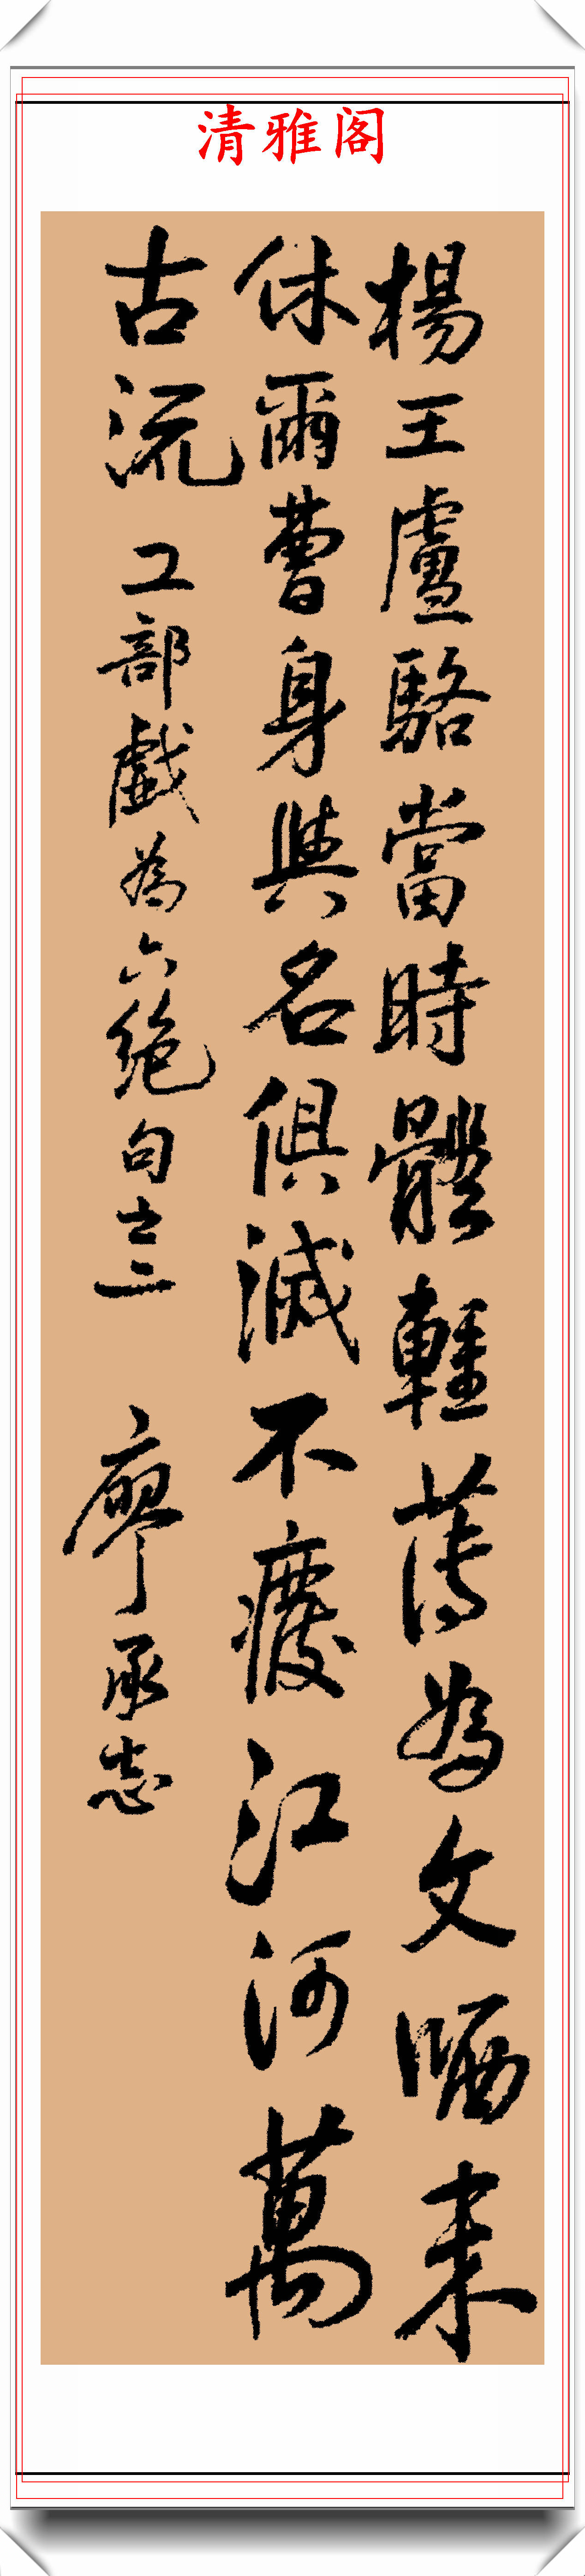 清雅阁
楊王盧駱當時體輕薄為文哂未
休爾曹身與名俱滅不廢江河萬
古流
工部戲為六絕句之二
廖承志